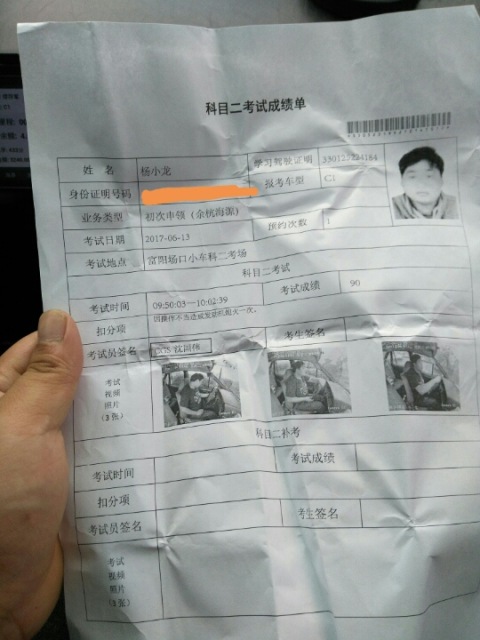 科目二考试成绩单
姓 名 杨小龙 学习驾驶证明
身份证明号码 报考车型 C1
业务类型 初次申领（余杭海源） 预约次数 1
考试日期 2017-06-13
考试地点 富阳场口小车科二考场
科目二考试
考试时间 09:50:03--10:02:39 考试成绩 90
扣分项 因操作不当造成发动机熄火一次。
考试员签名 考生签名
考试
视频
照片
(3张)
科目二补考
考试时间 考试成绩
扣分项
考试员签名 考生签名
考试
视频
照片
(3张)